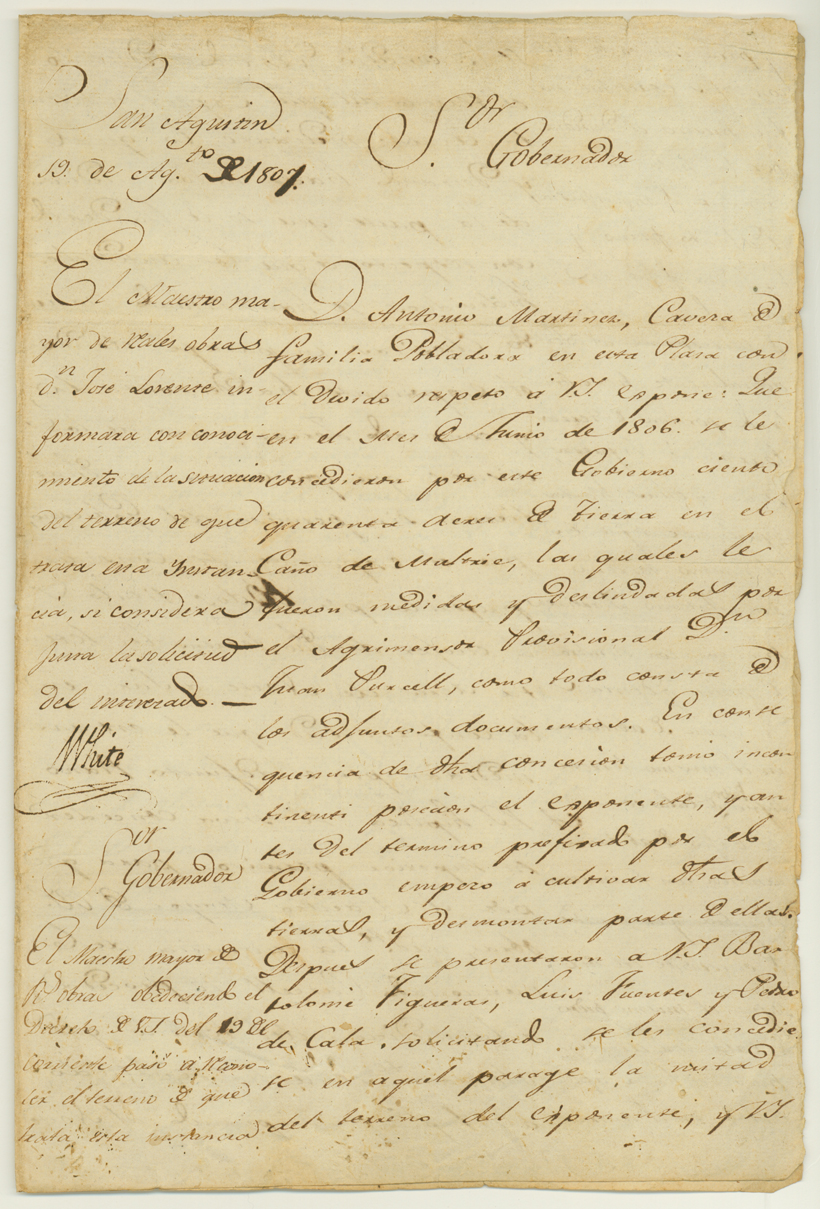 San Agustin
19. de Ag.to de 1807.
El Maestro ma-
yor de reales obras
d.n José Lorente in-
formara con conoci-
miento de la situacion
del terreno de que
trata esta Instan-
cia, si considera
justa la solicitud
del interesado.
White
S.or Gobernador
El Maestro mayor de
R.s obras obedeciendo el
Decreto de V.S. del 19 del
corriente pasó a recono-
cer el terreno de que
trata esta instancia
S.or Gobernador
D. Antonio Martinez, Cavera de
familia Pobladora en esta Plasa con
el Devido respeto á V.S. espone: Que
en el Mes de Junio de 1806. se le
concedieron por este Gobierno ciento
quarenta acres de tierra en el
Caño de Multrie, las quales le
fueron medidas y deslindadas por
el Agrimensor Provisional D.n
Juan Purcell, como todo consta de
los adjuntos documentos. En conse
quencia de dha concesion tomó incon
tinenti posecion el esponente, y an
tes del termino prefixado por el
Gobierno empezo á cultivar dhas
tierras, y desmontar parte de ellas.
Despues se presentaron a V.S. Bar
tolomé Figueras, Luis Fuentes y Pedro
de Cala, solicitando se les concedie
se en aquel parage la mitad
del terreno del esponente, y V.S.